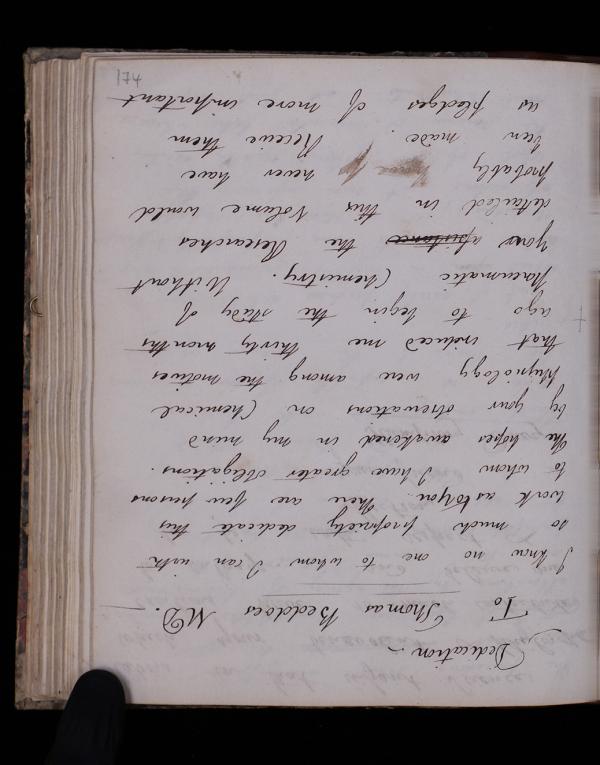 Dedication —
To Thomas Beddoes M.D.
I know no one to whom I can with
so much propriety dedicate this
work as to you. There are few persons
to whom I have greater obligations.
The hopes awakened in my mind
by your observations on Chemical
Physiology were among the motives
that induced me thirty months
ago to begin the study of
Pneumatic Chemistry. Without
your assistance the Researches
detailed in this volume would
probably never have
been made. Receive them
as pledges of more important
174